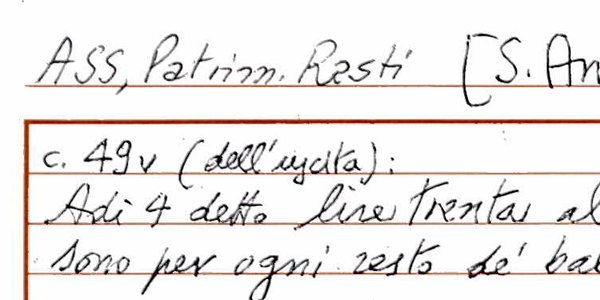 ASS, Patrim. Resti [S. An
c. 49v (dell'uscita):
Adi 4 detto lire trenta al
sono per ogni resto de' bal